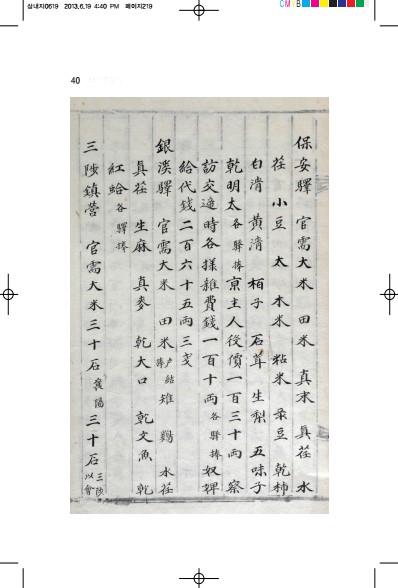 삼내지0619 2013.6.19 4:40 PM 페이지219
CM B
40
保安驛 官需大米 田米 真末 真荏 水
荏 小豆 太 木米 粘米 菉豆 乾柿
白淸 黃淸 栢子 石茸 生梨 五味子
乾明太 各驛捧 京主人役價一百三十両 察
訪交遞時各樣雜費錢一百十両 各驛捧 奴婢
給代錢二百六十五両三戔
銀溪驛 官需大米 田米 戶結捧 雉 鷄 水荏
真荏 生麻 真麥 乾大口 乾文魚 乾
紅蛤 各驛捧
三陟鎮營 官需大米三十石 襄陽 三十石 三陟以會